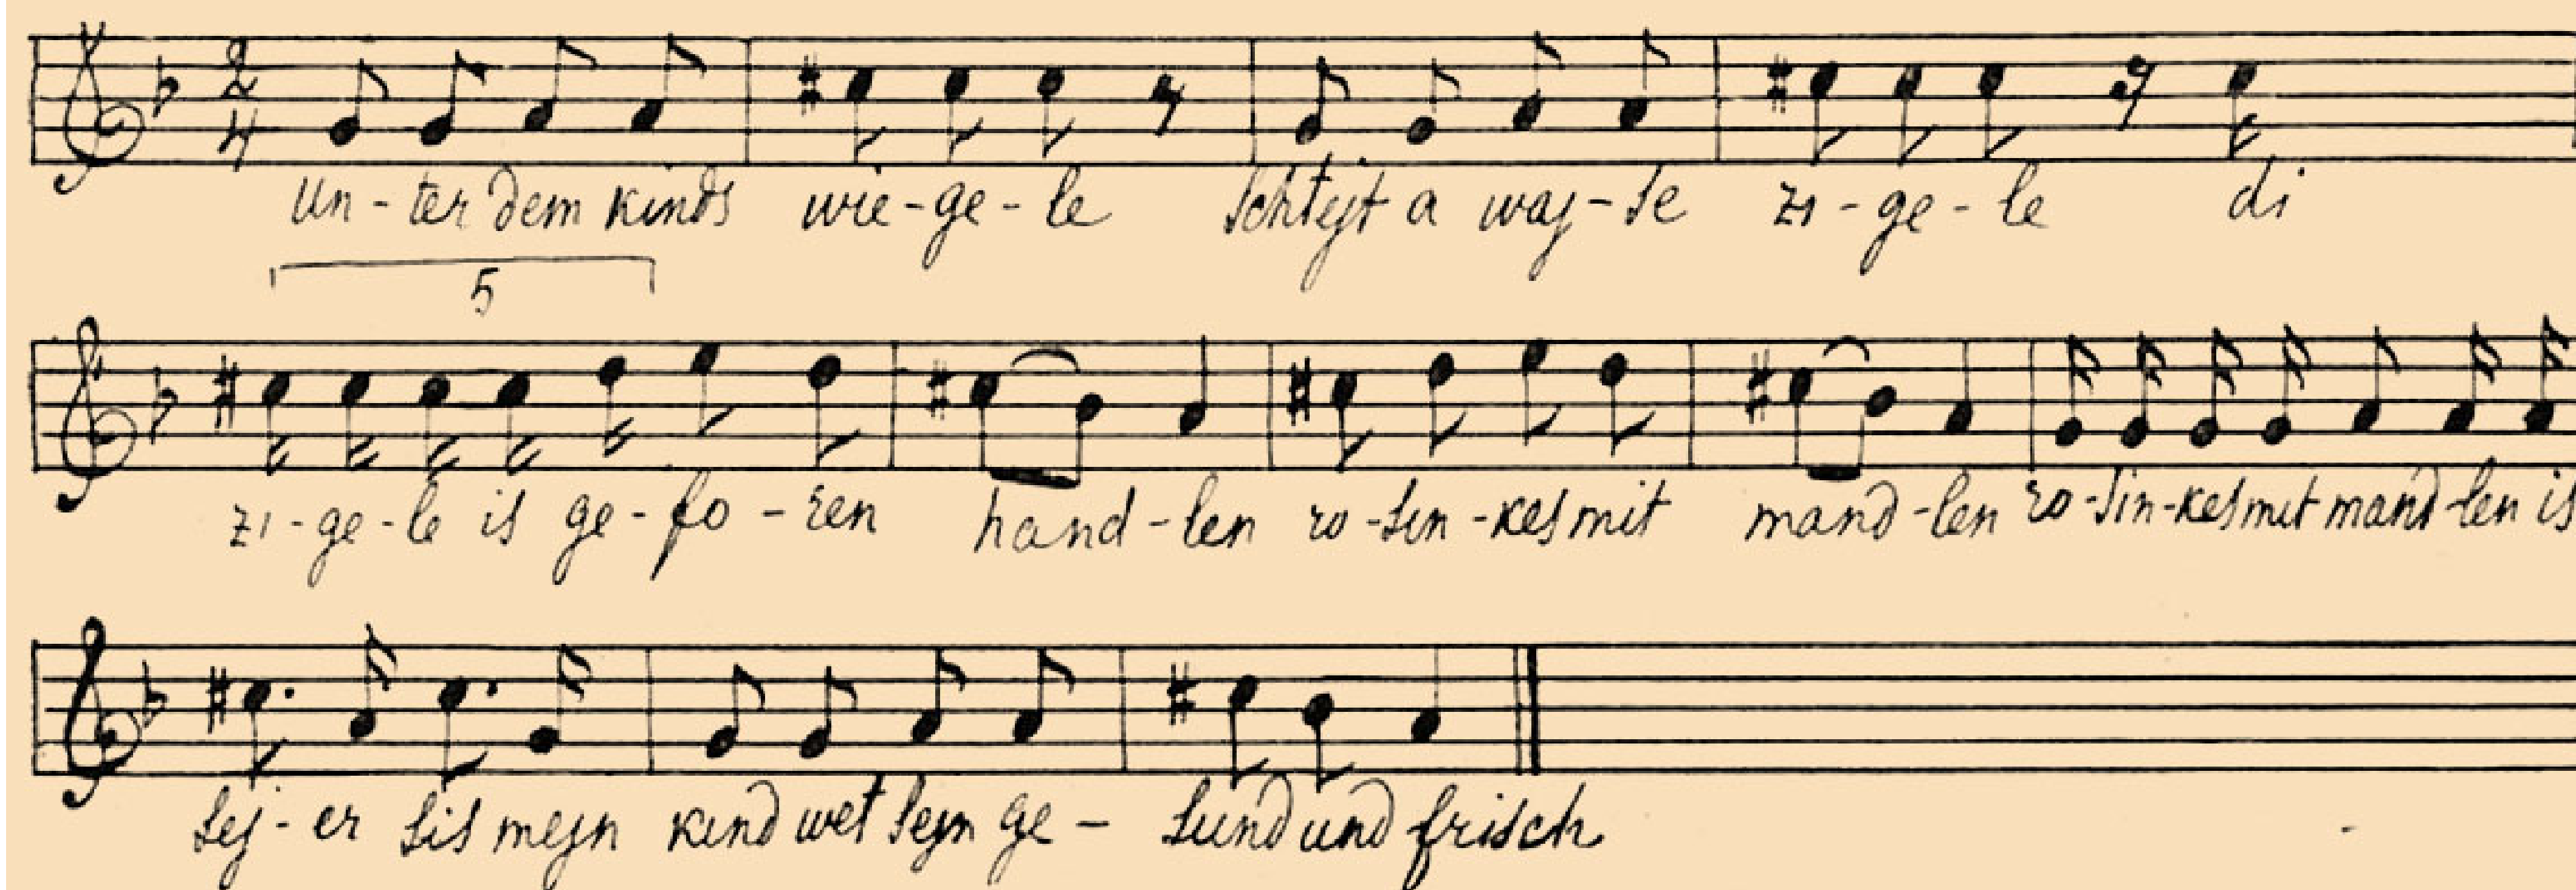 2 4
Un - ter dem kinds wie - ge - le schtejt a waj - se zi - ge - le di
5
zi - ge - le is ge - fo - ren hand - len ro - sin - kes mit mand - len ro - sin - kes mit mand - len is
sej - er sis mejn kind wet sejn ge - sund und frisch